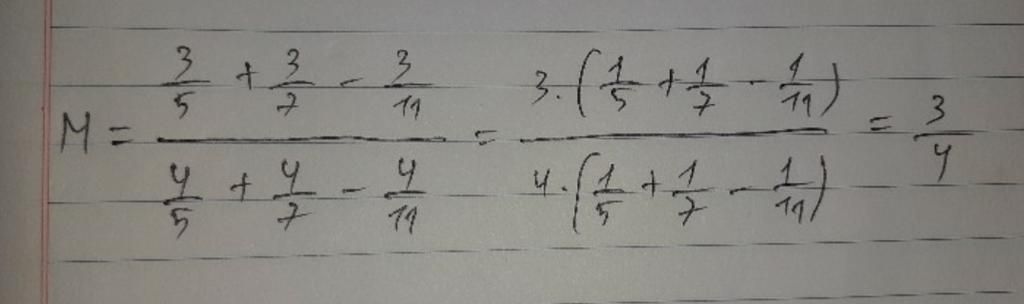 M = \frac{\frac{3}{5} + \frac{3}{7} - \frac{3}{11}}{\frac{4}{5} + \frac{4}{7} - \frac{4}{11}} = \frac{3 \cdot \left(\frac{1}{5} + \frac{1}{7} - \frac{1}{11}\right)}{4 \cdot \left(\frac{1}{5} + \frac{1}{7} - \frac{1}{11}\right)} = \frac{3}{4}